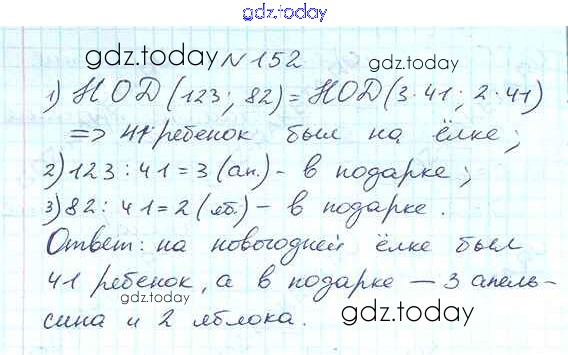 gdz.today
gdz.today № 152 gdz.today
1) НОД (123; 82) = НОД (3·41; 2·41)
=> 41 ребенок был на ёлке;
2) 123 : 41 = 3 (ап.) - в подарке;
3) 82 : 41 = 2 (яб.) - в подарке.
Ответ: на новогодней ёлке был
41 ребенок, а в подарке — 3 апель-
gdz.today
сина и 2 яблока. gdz.today